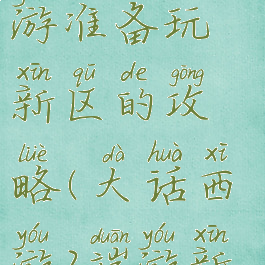 游准备玩
xīn qū de gōng
新区的攻
lüè dà huà xī
略(大话西
yóu duān yóu xīn
游)端游新